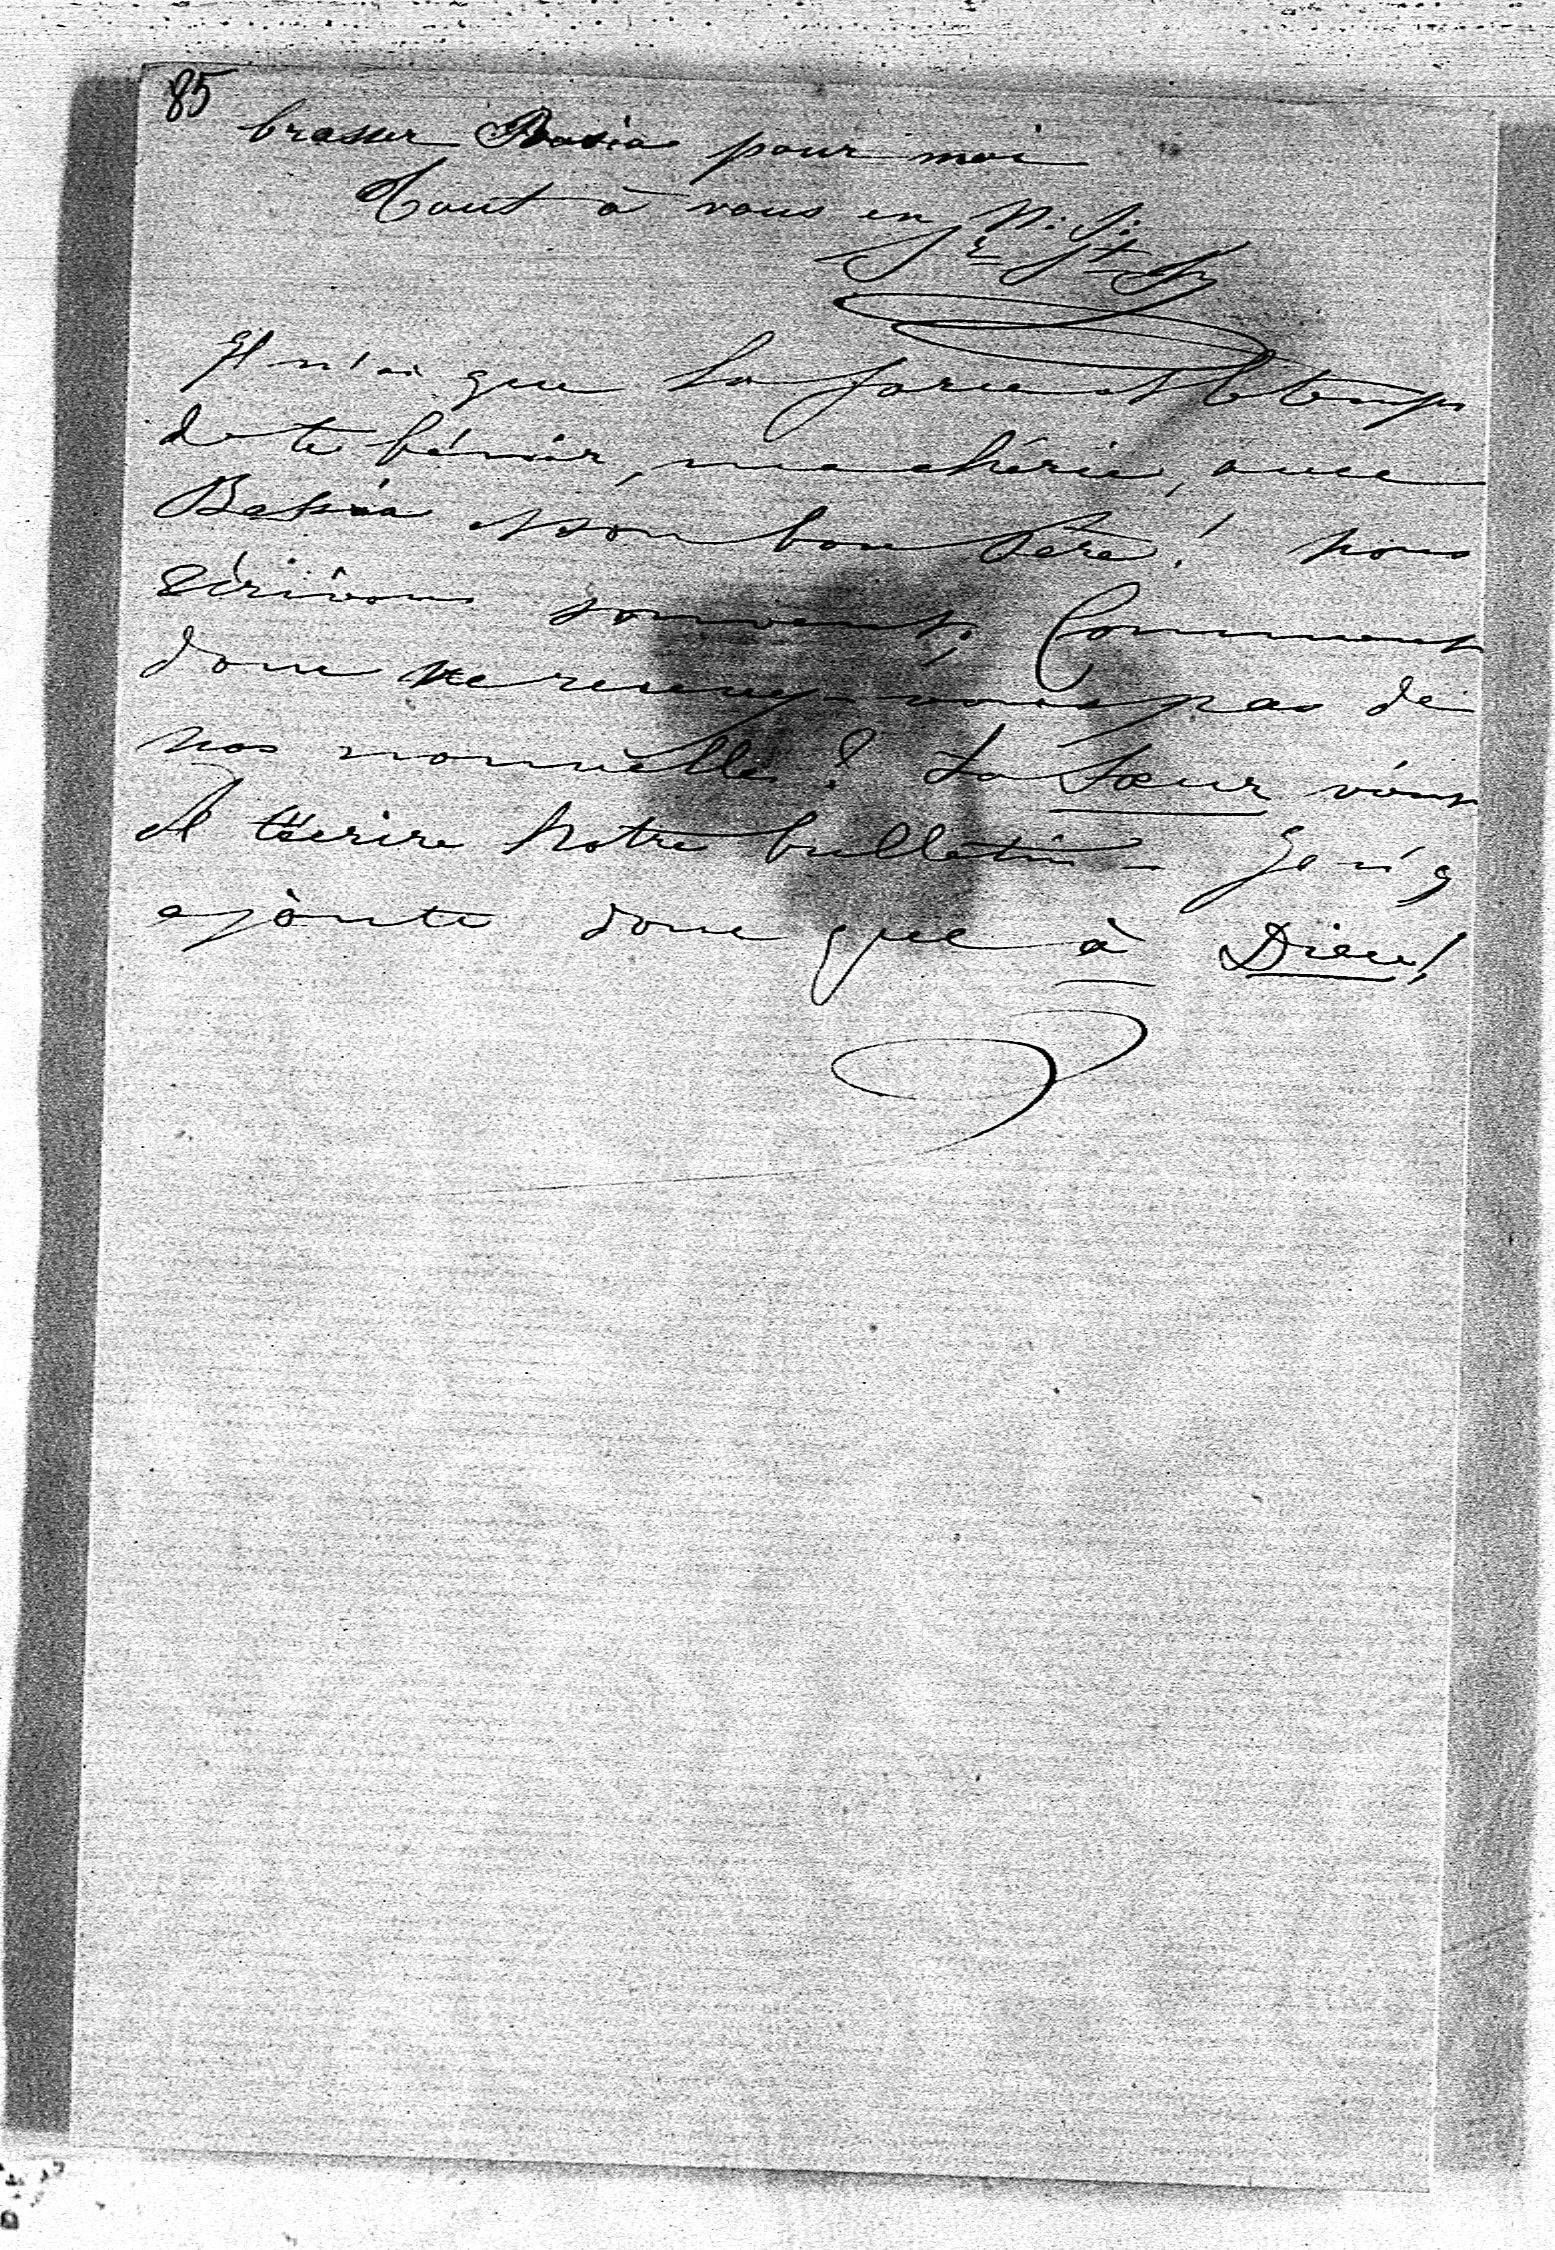 85
brasser Basia pour moi
Tout à vous en N. S.
Sr St
Je n'ai que la force et le temps
de te bénir, ma chérie, avec
Basia et son bon Père! Nous
écrivons souvent; Comment
donc ne recevez-vous pas de
nos nouvelles? La Soeur vient
d'écrire notre bulletin - Je n'y
ajoute donc que à Dieu!